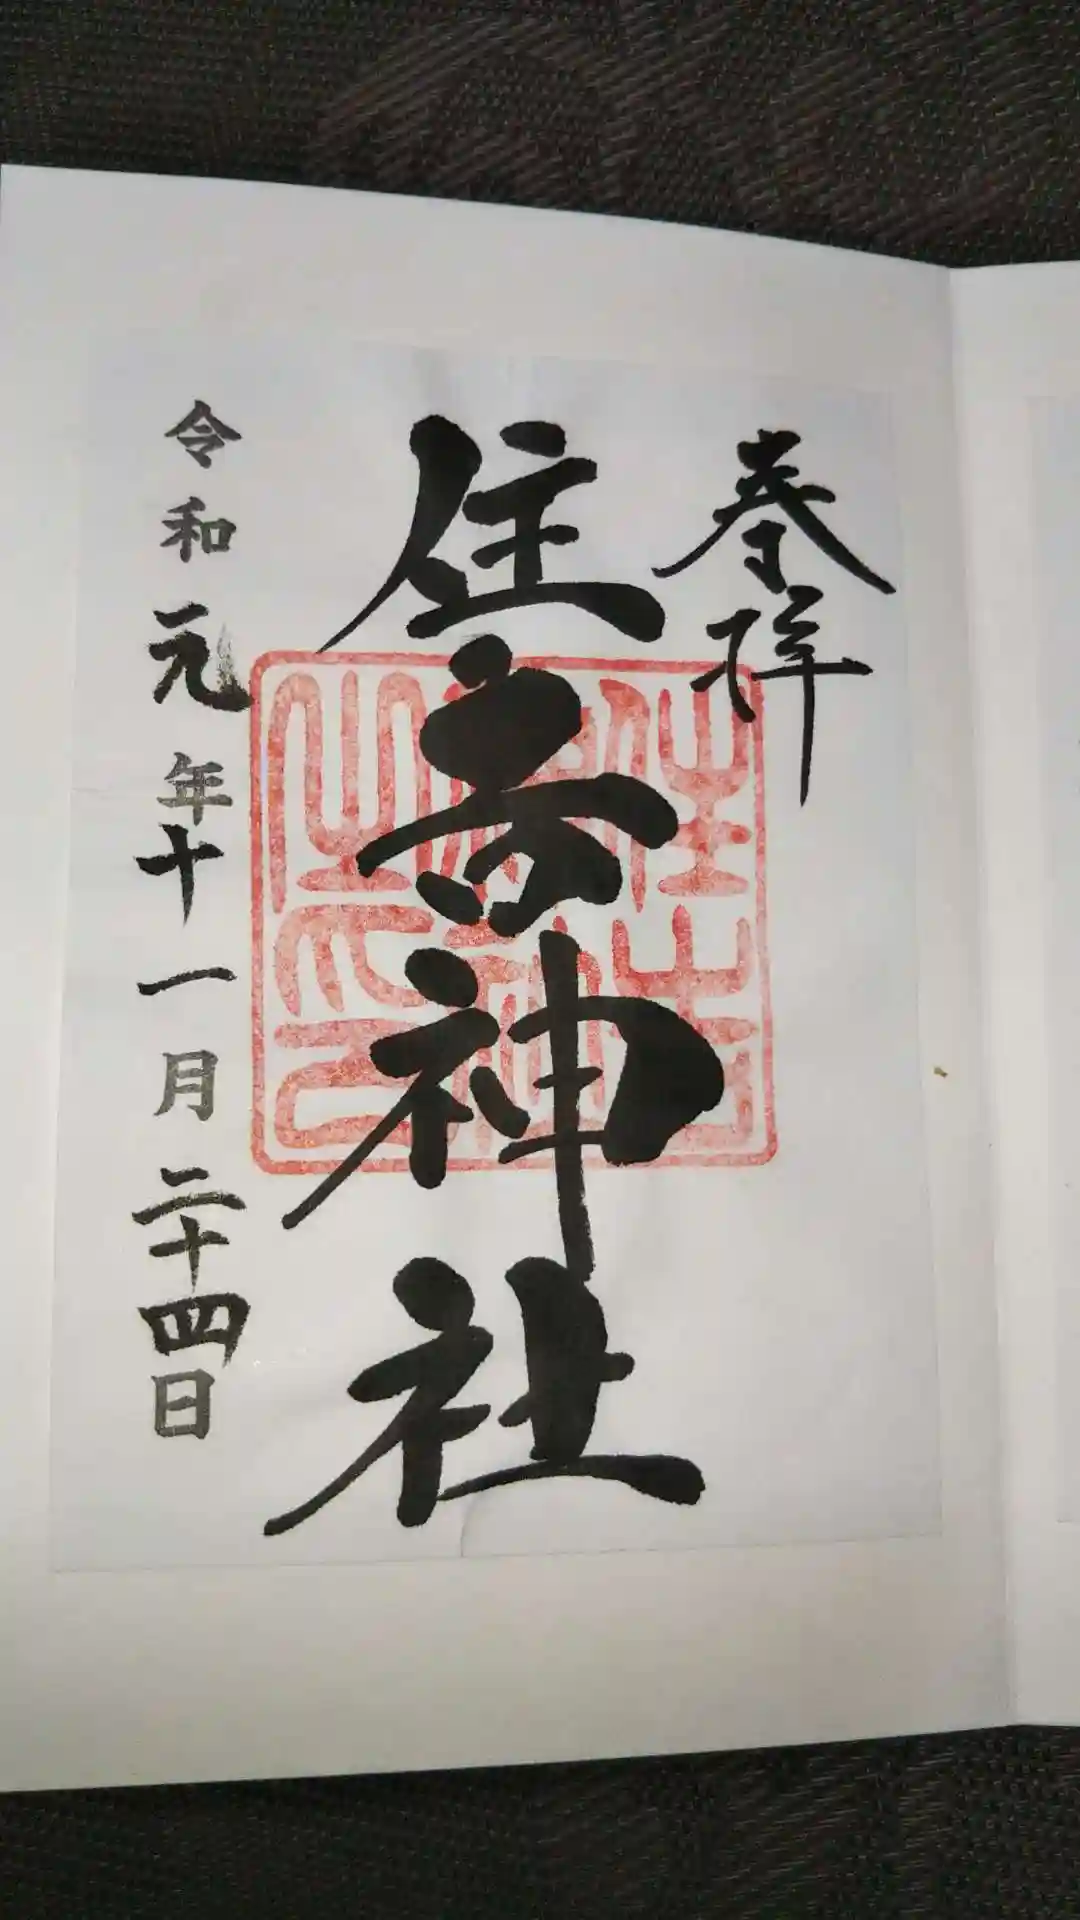 奉拝
住吉神社
令和元年十一月二十四日